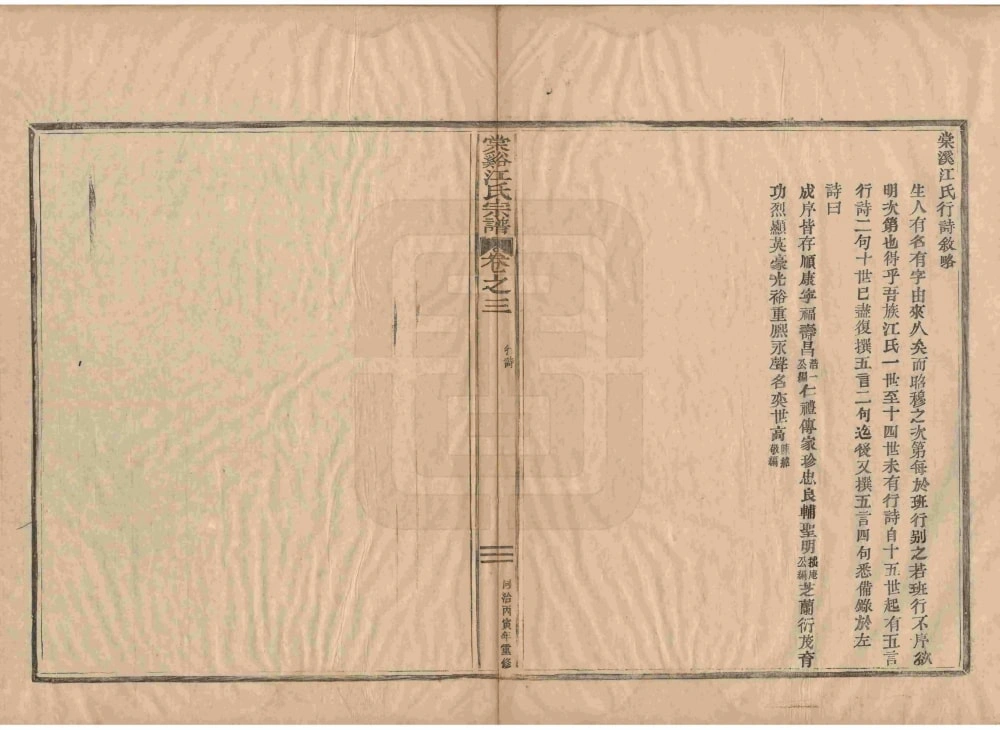 棠溪江氏行詩敘略
生人有名有字由來久矣而昭穆之次第每於班行别之若班行不序欲
明次第也得乎吾族江氏一世至十四世未有行詩自十五世起有五言
行詩二句十世已盡復撰五言二句迄後又撰五言四句悉備錄於左
詩曰
成序皆存順康寧福壽昌浩一公編仁禮傳家珍忠良輔聖明公編芝蘭衍茂育
功烈顯英豪光裕重熙永聲名奕世高敬編
棠谿江氏宗譜 卷之三 行詩 三 同治丙寅年重修